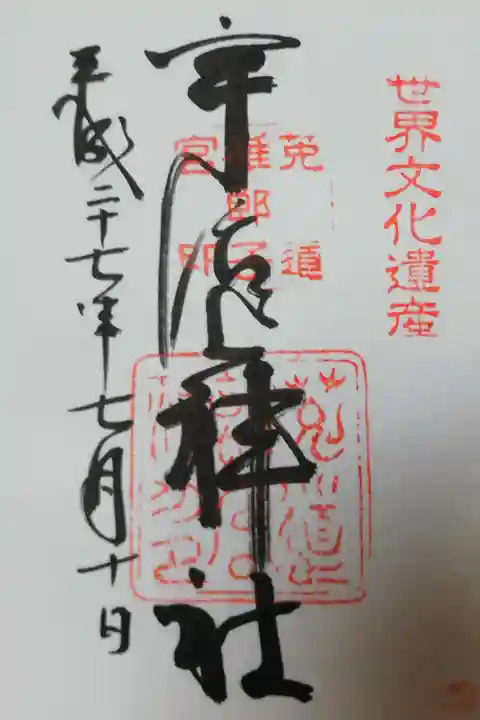 世界文化遺産
菟道
稚郎子
宮印
宇治神社
平成二十七年七月十日